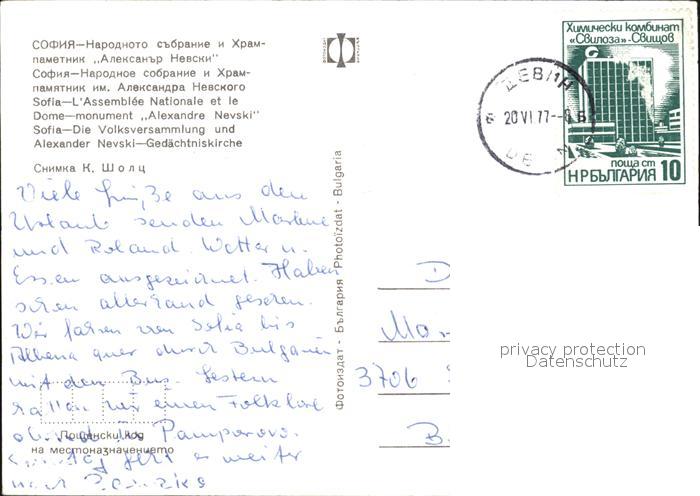 СОФИЯ—Народното събрание и Храм-
паметник „Алексанър Невски"
София—Народное собрание и Храм-
памятник им. Александра Невского
Sofia—L'Assemblée Nationale et le
Dome—monument „Alexandre Nevski"
Sofia—Die Volksversammlung und
Alexander Nevski—Gedächtniskirche
Снимка К. Шолц
Viele Grüße aus dem
Urlaub senden
und Roland. Wetter u.
Essen ausgezeichnet. Haben
schon allerhand gesehen.
Wir fahren von Sofia bis
Albena quer durch Bulgarien
mit dem Bus. Gestern
hatten wir einen Folklore
abend in Pamporovo.
geht es weiter
nach
Пощенски код
на местоназначението
Фотоиздат - България - Photoïzdat - Bulgaria
Химически комбинат
«Свилоза»-Свищов
поща ст
НРБЪЛГАРИЯ 10
ДЕВИН
20 VI 77
D
3706
privacy protection
Datenschutz